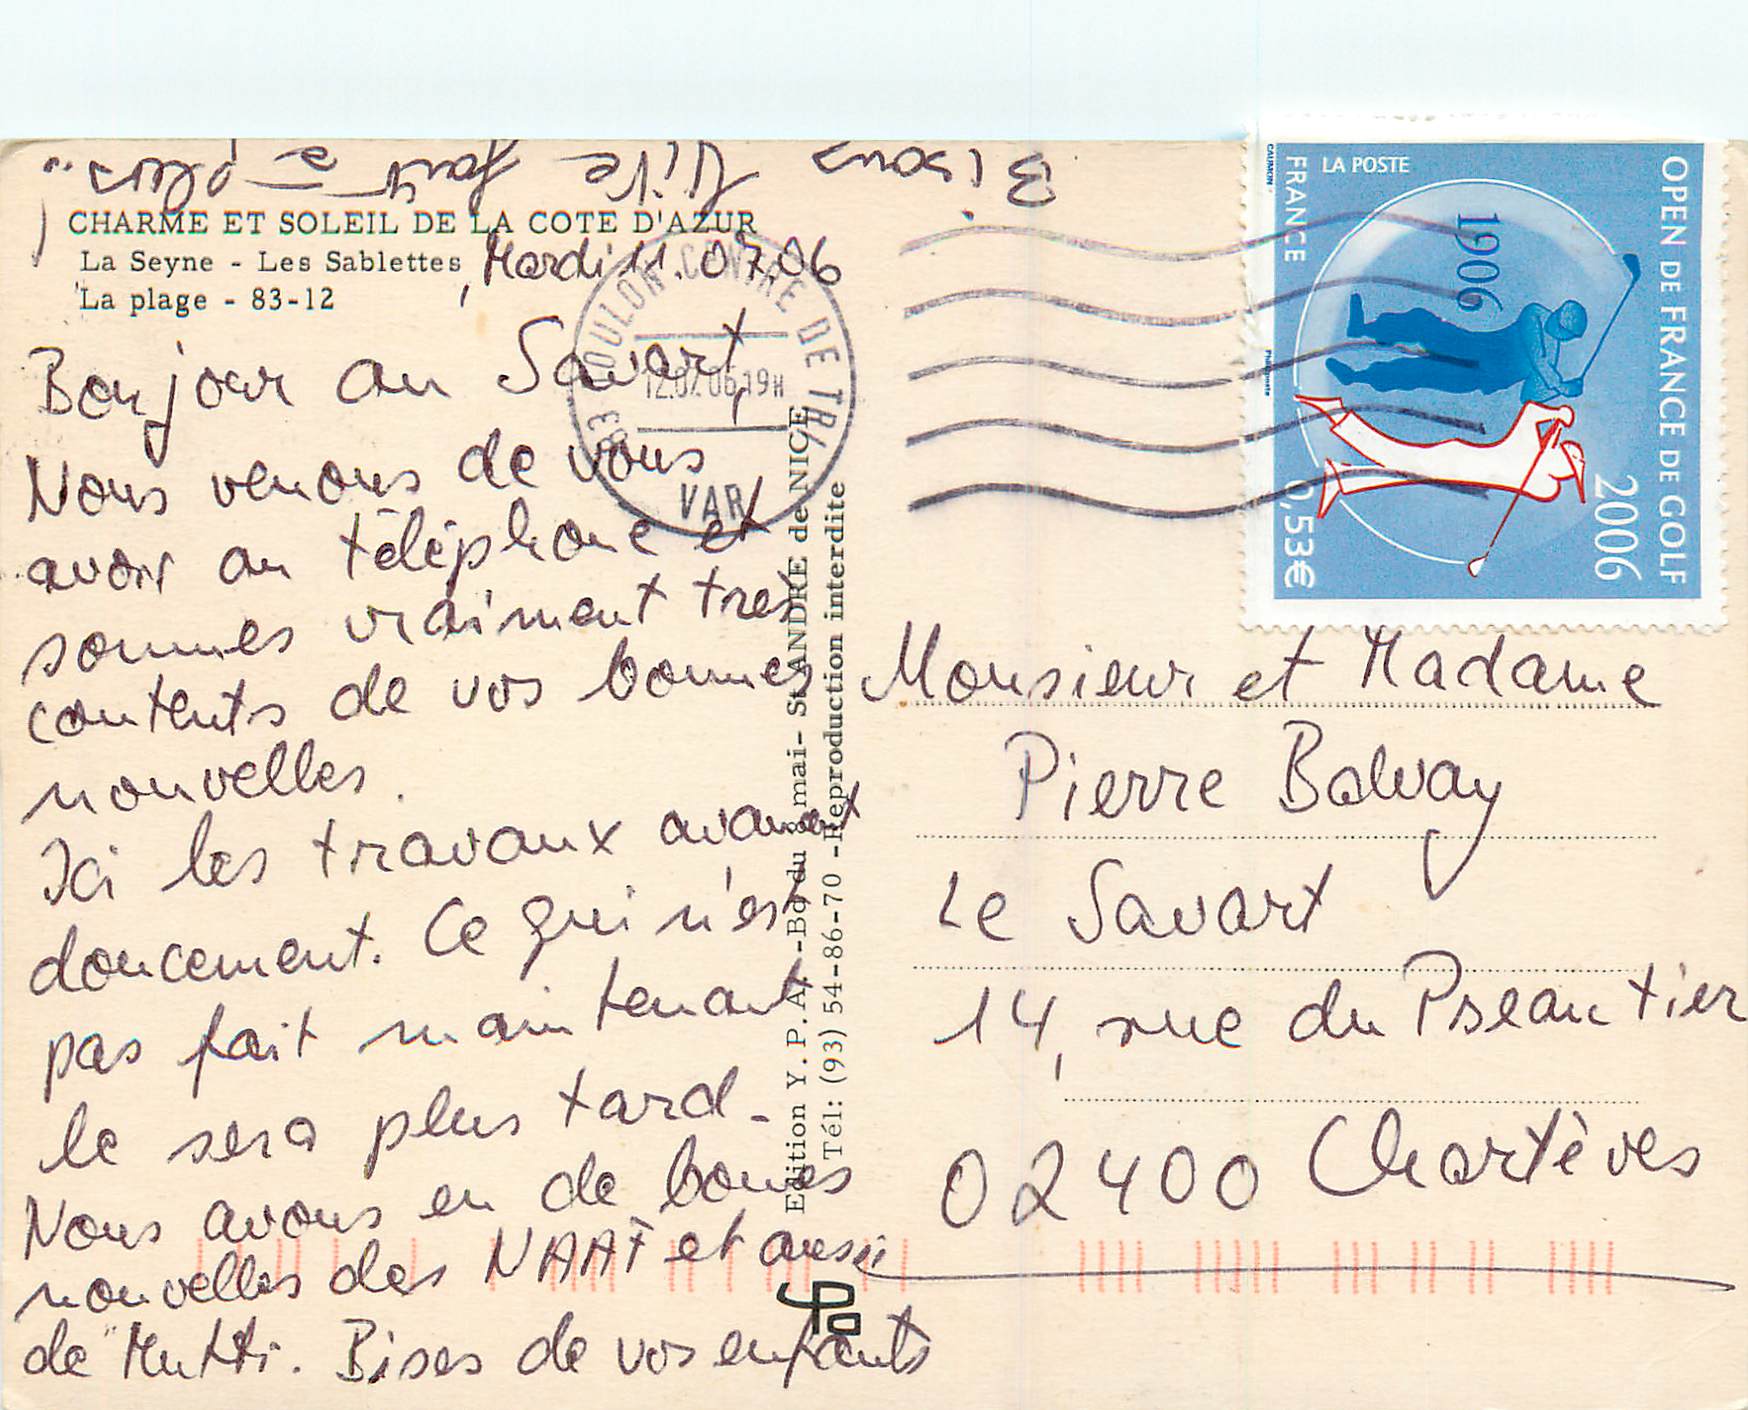 Bisous Vite fait à plus...
CHARME ET SOLEIL DE LA COTE D'AZUR
La Seyne - Les Sablettes
La plage - 83-12
Mardi 11.07.06
Bonjour au Savart,
Nous venons de vous
avoir au téléphone et
sommes vraiment très
contents de vos bonnes
nouvelles.
Ici les travaux avancent
doucement. Ce qui n'est
pas fait maintenant
le sera plus tard -
Nous avons eu de bonnes
nouvelles des NAAÏ et aussi
de "Mutti. Bises de vos enfants
83 TOULON CENTRE DE TRI
12.07.06 19H
VAR
Edition Y.P.A. - Bd du 8 mai - St ANDRE de NICE
Tél: (93) 54-86-70 - Reproduction interdite
LA POSTE
FRANCE
1906
OPEN DE FRANCE DE GOLF
2006
0,53€
Monsieur et Madame
Pierre Balvay
Le Savart
14, rue du Pseautier
02400 Chartèves